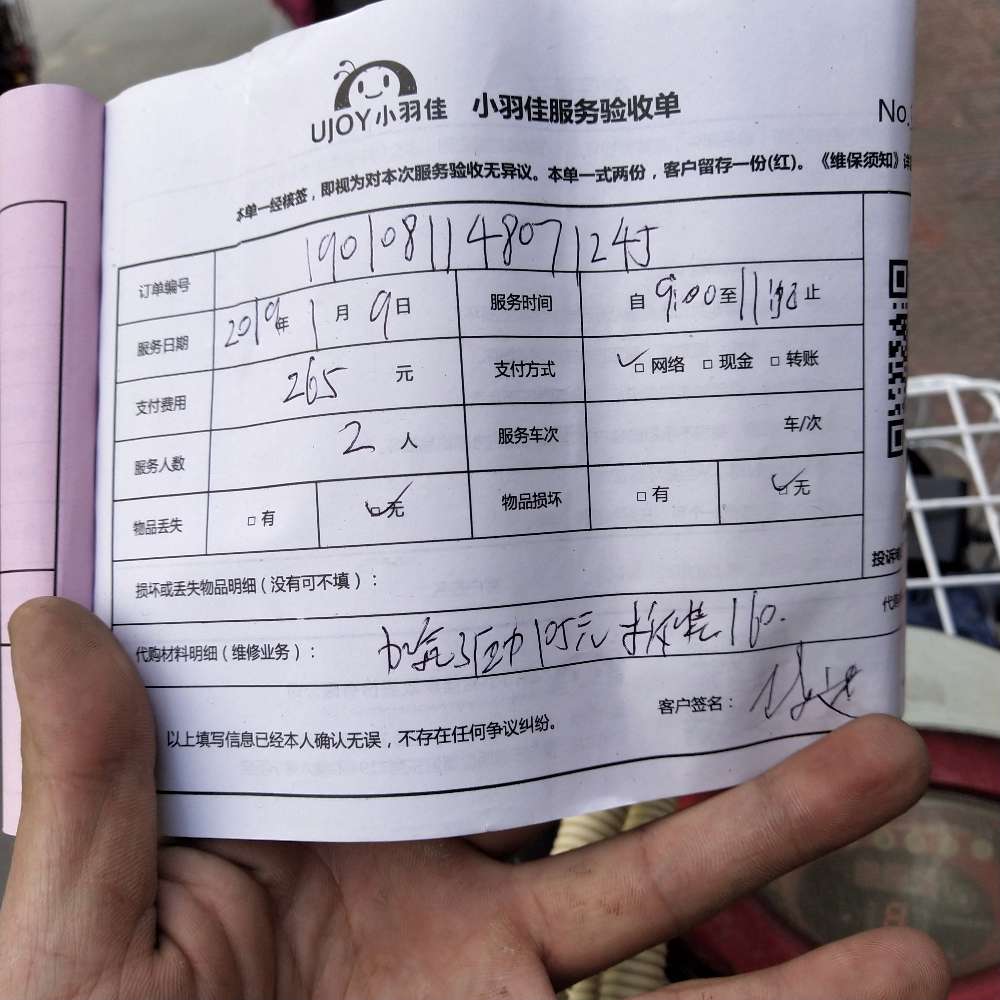 UJOY小羽佳 小羽佳服务验收单 No.
本单一经核签，即视为对本次服务验收无异议。本单一式两份，客户留存一份(红)。《维保须知》详
订单编号 190108114807124
服务日期 2019年1月9日 服务时间 自9:00至 止
支付费用 265 元 支付方式 ✓□网络 □现金 □转账
服务人数 2 人 服务车次 车/次
物品丢失 □有 ☑无 物品损坏 □有 ☑无
损坏或丢失物品明细（没有可不填）：
投诉
代购材料明细（维修业务）： 加氟3压力105元 拆装160.
客户签名：
以上填写信息已经本人确认无误，不存在任何争议纠纷。